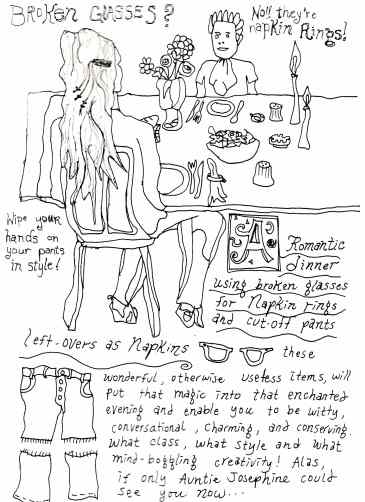 BROKEN GLASSES?
No!! they're
napkin Rings!
Wipe your
hands on
your pants
in style!
A
Romantic
dinner
using broken glasses
for Napkin rings
and cut-off pants
left-overs as Napkins
these
wonderful, otherwise useless items, will
put that magic into that enchanted
evening and enable you to be witty,
conversational, charming, and conserving.
What class, what style and what
mind-boggling creativity! Alas,
if only Auntie Josephine could
see you now...